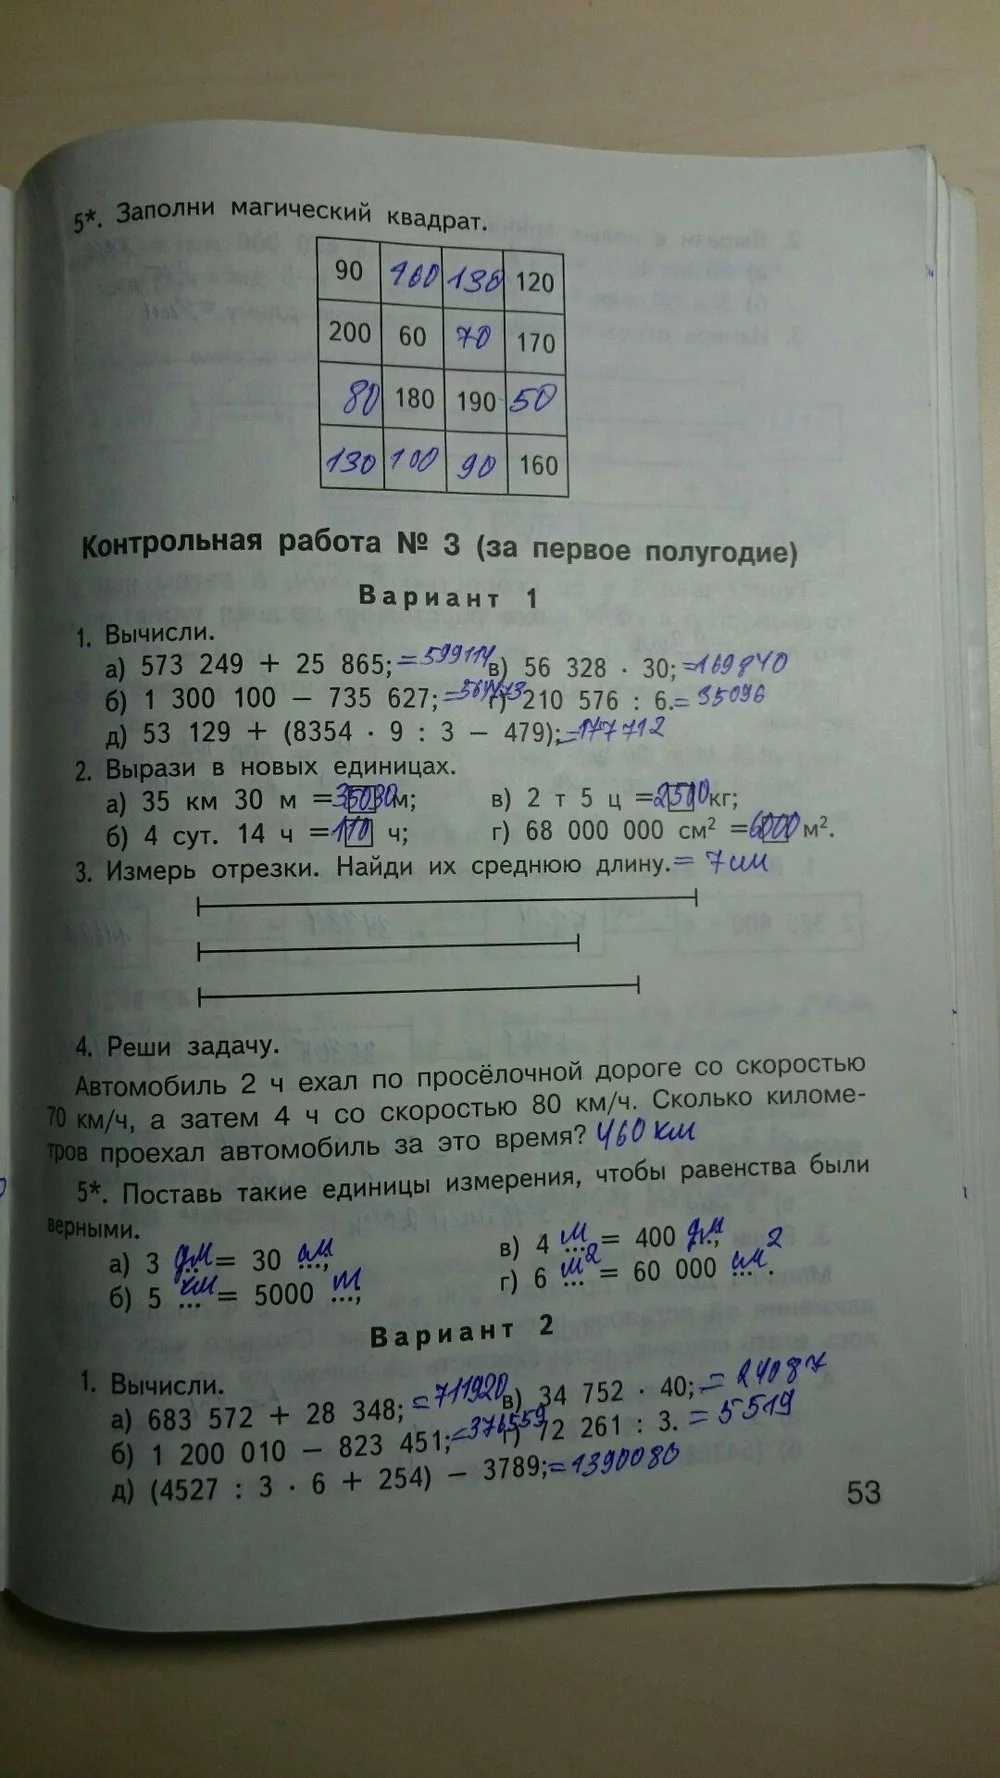 5*. Заполни магический квадрат.
90 160 130 120
200 60 70 170
80 180 190 50
130 100 90 160
Контрольная работа № 3 (за первое полугодие)
Вариант 1
1. Вычисли.
а) 573 249 + 25 865; =599114 в) 56 328 · 30; =169840
б) 1 300 100 – 735 627; =564473 г) 210 576 : 6. = 35096
д) 53 129 + (8354 · 9 : 3 – 479); =177712
2. Вырази в новых единицах.
а) 35 км 30 м = 35030 м; в) 2 т 5 ц = 2500 кг;
б) 4 сут. 14 ч = 110 ч; г) 68 000 000 см² = 6000 м².
3. Измерь отрезки. Найди их среднюю длину. = 7 см
4. Реши задачу.
Автомобиль 2 ч ехал по просёлочной дороге со скоростью
70 км/ч, а затем 4 ч со скоростью 80 км/ч. Сколько киломе-
тров проехал автомобиль за это время? 460 км
5*. Поставь такие единицы измерения, чтобы равенства были
верными.
а) 3 дм = 30 см; в) 4 м = 400 дм;
б) 5 км = 5000 м; г) 6 м² = 60 000 см².
Вариант 2
1. Вычисли.
а) 683 572 + 28 348; =711920 в) 34 752 · 40; = 24087
б) 1 200 010 – 823 451; =376559 г) 72 261 : 3. = 5519
д) (4527 : 3 · 6 + 254) – 3789; =1390080
53